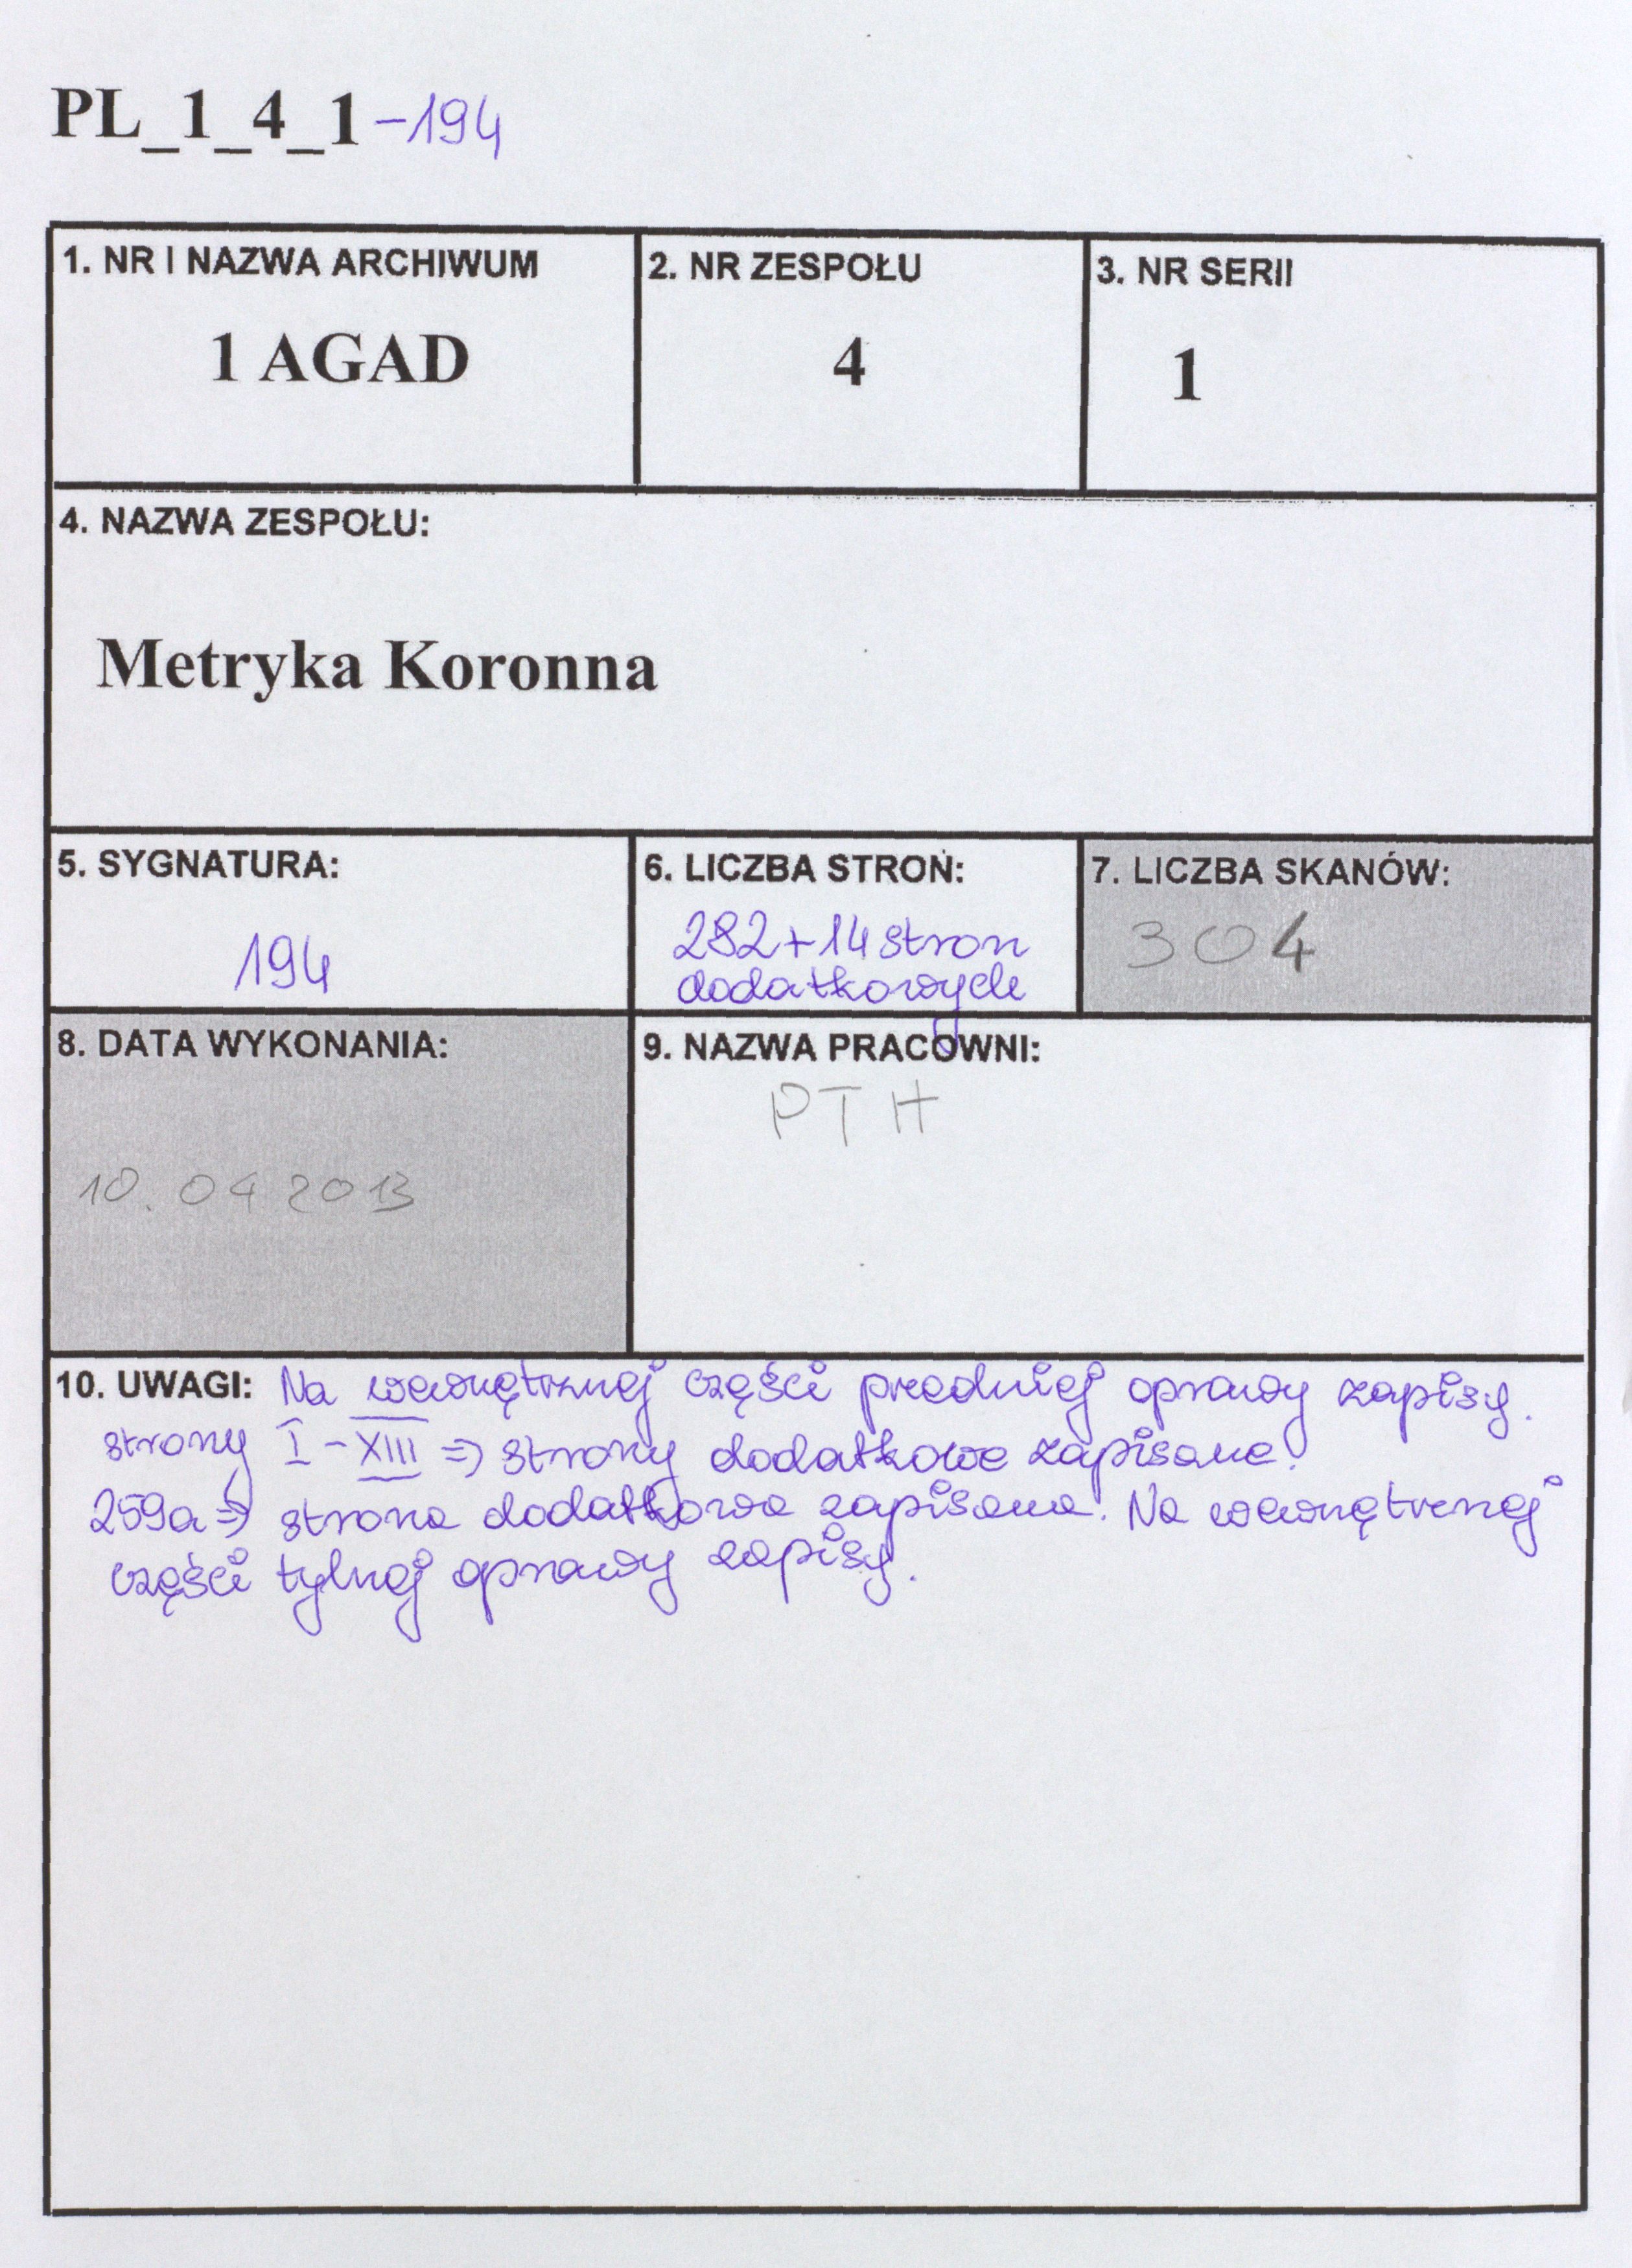 PL_1_4_1 -194
1. NR I NAZWA ARCHIWUM
1 AGAD
2. NR ZESPOŁU
4
3. NR SERII
1
4. NAZWA ZESPOŁU:
Metryka Koronna
5. SYGNATURA:
194
6. LICZBA STRON:
282+14 stron
dodatkowych
7. LICZBA SKANÓW:
304
8. DATA WYKONANIA:
10.04 2013
9. NAZWA PRACOWNI:
PTH
10. UWAGI: Na wewnętrznej części przedniej oprawy zapisy.
strony I - XIII => strony dodatkowe zapisane.
259a => strona dodatkowa zapisana. Na wewnętrznej
części tylnej oprawy zapisy.